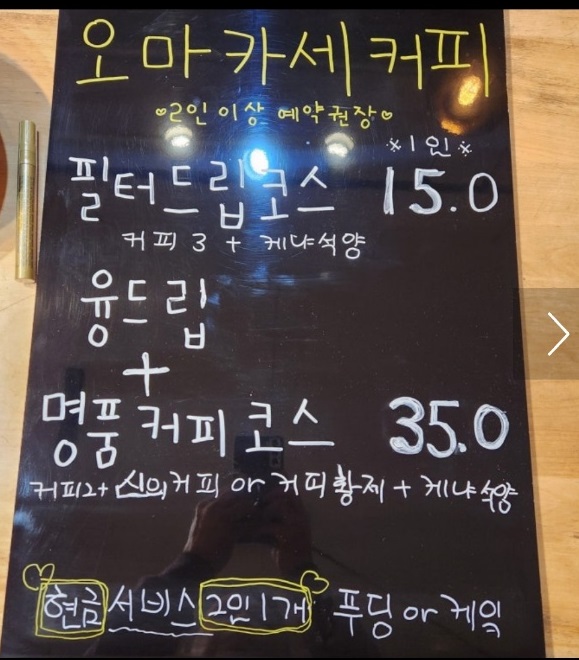 오마카세커피
2인이상 예약권장
※1인※
필터드립코스 15.0
커피3 + 케냐석양
융드립
+
명품커피코스 35.0
커피2+신의커피 or 커피황제 + 케냐석양
현금서비스2인1개 푸딩 or 케잌